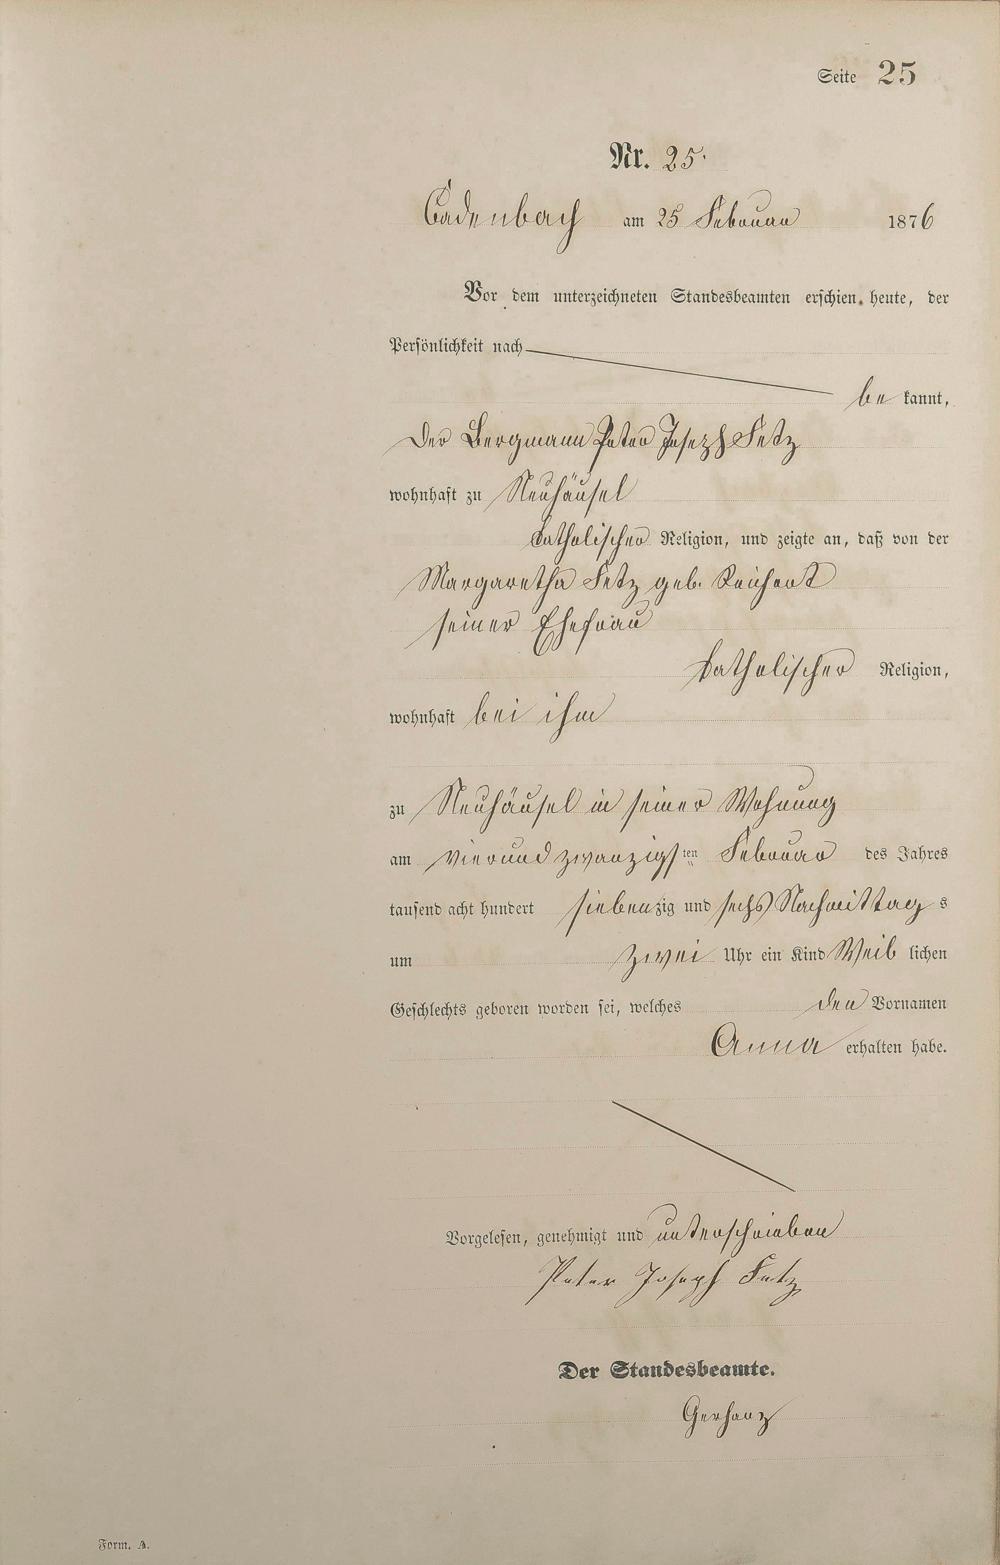 Seite 25
Nr. 25.
Cadenbach am 25 Februar 1876
Vor dem unterzeichneten Standesbeamten erschien heute, der
Persönlichkeit nach
be kannt,
Der Bergmann Peter Joseph Fetz
wohnhaft zu Neuhäusel
katholischer Religion, und zeigte an, daß von der
Margaretha Fetz geb. Reichert
seiner Ehefrau
katholischer Religion,
wohnhaft bei ihm
zu Neuhäusel in seiner Wohnung
am vierundzwanzigsten Februar des Jahres
tausend acht hundert siebenzig und sechs Nachmittag s
um zwei Uhr ein Kind Weib lichen
Geschlechts geboren worden sei, welches den Vornamen
Anna erhalten habe.
Vorgelesen, genehmigt und unterschrieben
Peter Joseph Fetz
Der Standesbeamte.
Gerhanz
Form. A.